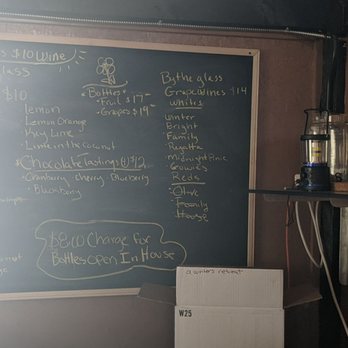 s $10 Wine
lass
$10
lemon
Lemon Orange
Key Lime
Lime in the Coconut
Chocolate tastings @ $12
Cranberry Cherry Blueberry
Blackberry
Bottles
Fruit $17
Grapes $19
By the glass
Grape wines $14
Whites
Winter
Bright
Family
Regatta
Midnight Pinic
Gowies
Reds
Olive
Family
House
$8.00 Charge for
Bottles Open In House
a winters retreat
W25